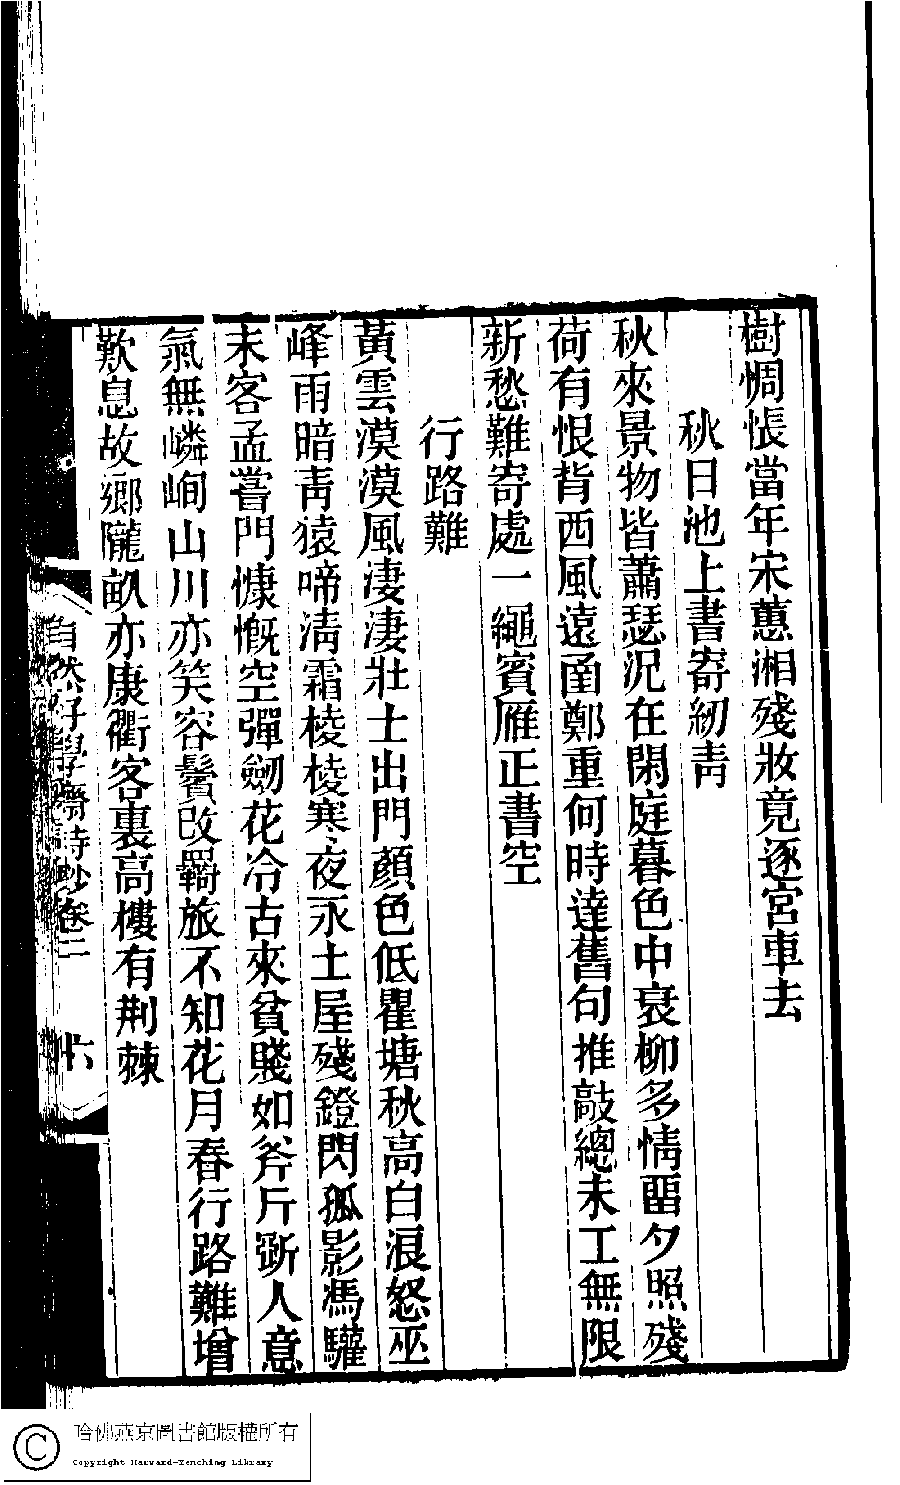 樹惆悵當年宋蕙湘殘妝竟逐宮車去
秋日池上書寄紉青
秋來景物皆蕭瑟況在閑庭暮色中衰柳多情畱夕照殘
荷有恨背西風遠凾鄭重何時達舊句推敲總未工無限
新愁難寄處一繩賓雁正書空
行路難
黃雲漠漠風淒淒壯士出門顏色低瞿塘秋高白浪怒巫
峰雨暗靑猿啼淸霜棱棱寒夜永土屋殘鐙閃孤影馮驩
末客孟嘗門慷慨空彈劒花冷古來貧賤如斧斤斲人意
氣無嶙峋山川亦笑容鬢改羈旅不知花月春行路難增
歎息故鄉隴畝亦康衢客裏高樓有荆棘
自然好學齋詩鈔卷二
十六
哈佛燕京圖書館版權所有
Copyright Harvard-Yenching Library